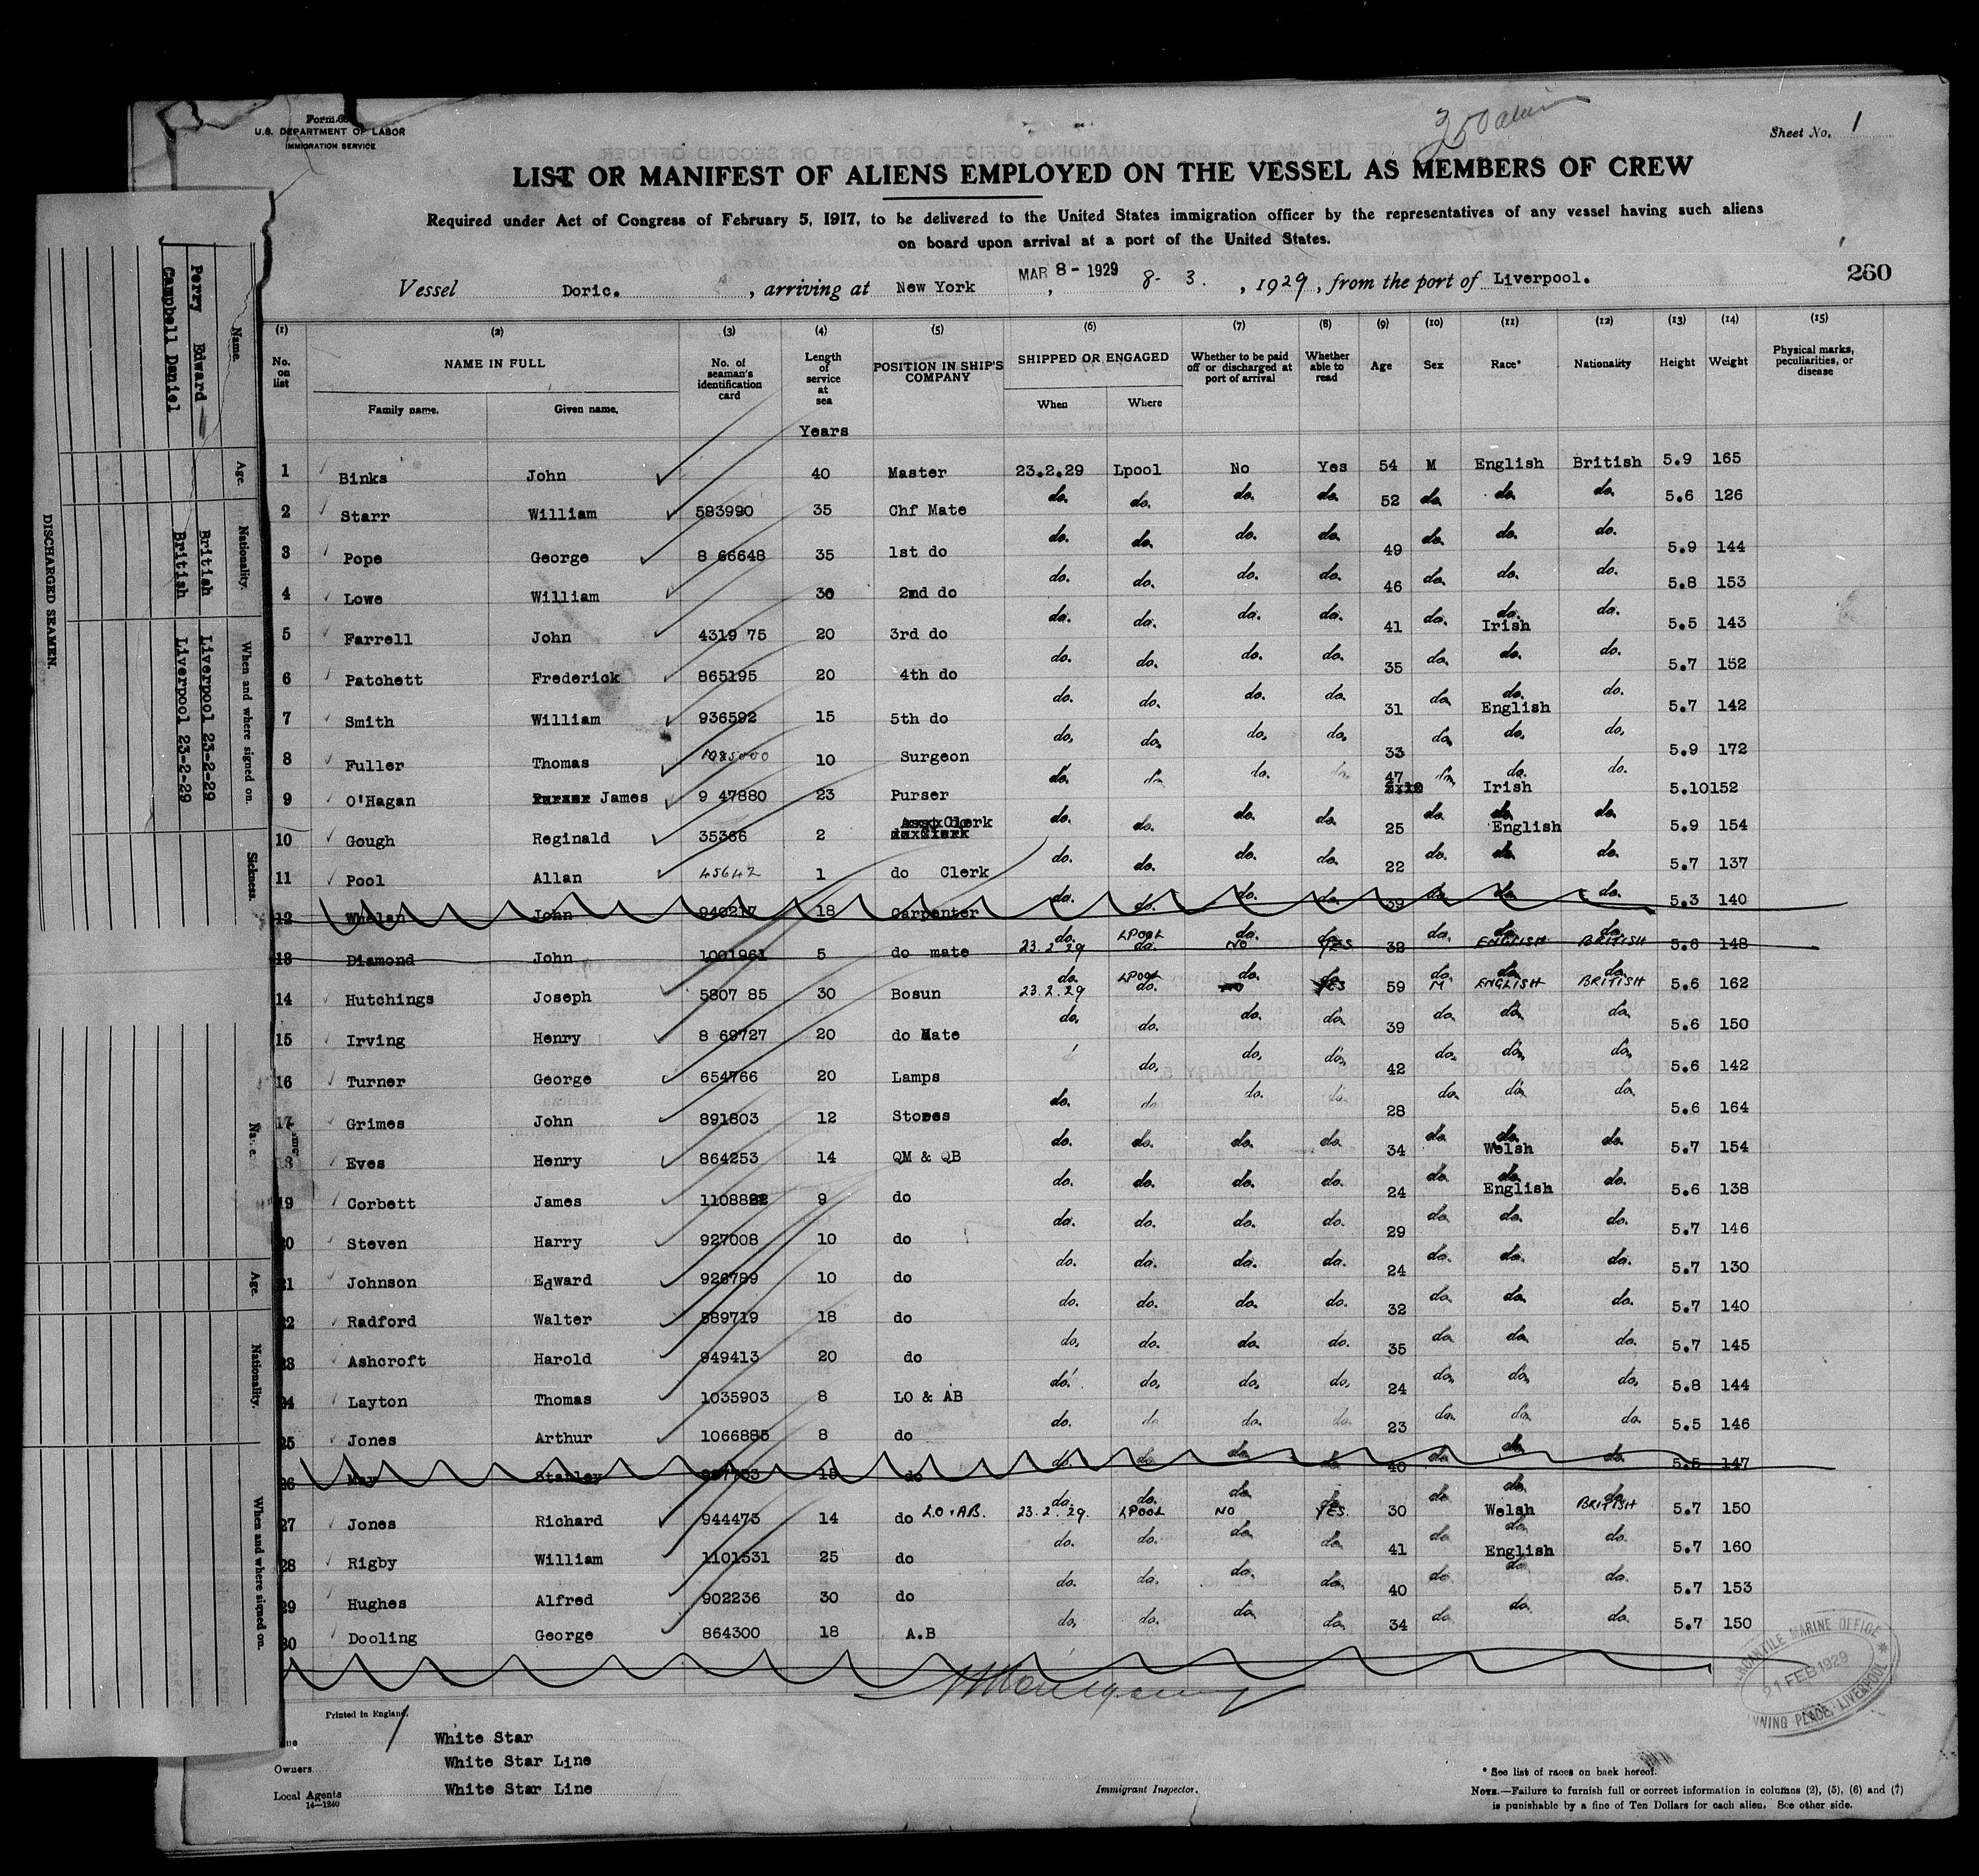 Form 6
U.S. DEPARTMENT OF LABOR
IMMIGRATION SERVICE
Sheet No. 1
LIST OR MANIFEST OF ALIENS EMPLOYED ON THE VESSEL AS MEMBERS OF CREW
Required under Act of Congress of February 5, 1917, to be delivered to the United States immigration officer by the representatives of any vessel having such aliens
on board upon arrival at a port of the United States.
Vessel Doric. , arriving at New York MAR 8 - 1929 , 8- 3. , 1929, from the port of Liverpool. 260
(1) (2) (3) (4) (5) (6) (7) (8) (9) (10) (11) (12) (13) (14) (15)
No. on list NAME IN FULL Family name. Given name. No. of seaman's identification card Length of service at sea POSITION IN SHIP'S COMPANY SHIPPED OR ENGAGED When Where Whether to be paid off or discharged at port of arrival Whether able to read Age Sex Race* Nationality Height Weight Physical marks, peculiarities, or disease
Years
1 Binks John 40 Master 23.2.29 Lpool No Yes 54 M English British 5.9 165
2 Starr William 583990 35 Chf Mate do. do. do. do. 52 do. do. do. 5.6 126
3 Pope George 8 66648 35 1st do do. do. do. do. 49 do. do. do. 5.9 144
4 Lowe William 30 2nd do do. do. do. do. 46 do. do. do. 5.8 153
5 Farrell John 4319 75 20 3rd do do. do. do. do. 41 do. do. Irish do. 5.5 143
6 Patchett Frederick 865195 20 4th do do. do. do. do. 35 do. do. do. 5.7 152
7 Smith William 936592 15 5th do do. do. do. do. 31 do. do. English do. 5.7 142
8 Fuller Thomas 10 Surgeon do. do. do. do. 33 do. do. do. 5.9 172
9 O'Hagan James 9 47880 23 Purser do. do. do. do. 47 do. do. Irish do. 5.10 152
10 Gough Reginald 35366 2 Clerk do. do. do. do. 25 do. do. English do. 5.9 154
11 Pool Allan 45642 1 do Clerk do. do. do. do. 22 do. do. do. 5.7 137
12 Whelan John 940217 18 Carpenter do. do. do. do. 39 do. do. do. 5.3 140
13 Diamond John 1001961 5 do mate do. 23.2.29 LPOOL do. do. NO do. YES 32 do. do. ENGLISH do. BRITISH 5.6 148
14 Hutchings Joseph 5807 85 30 Bosun do. 23.2.29 LPOOL do. do. NO do. YES 59 do. M do. ENGLISH do. BRITISH 5.6 162
15 Irving Henry 8 69727 20 do Mate do. do. do. do. 39 do. do. do. 5.6 150
16 Turner George 654766 20 Lamps do. do. do. 42 do. do. do. 5.6 142
17 Grimes John 891803 12 Stores do. do. do. do. 28 do. do. do. 5.6 164
18 Eves Henry 864253 14 QM & QB do. do. do. do. 34 do. do. Welsh do. 5.7 154
19 Corbett James 9 do do. do. do. do. 24 do. do. English do. 5.6 138
20 Steven Harry 927008 10 do do. do. do. do. 29 do. do. do. 5.7 146
21 Johnson Edward 926789 10 do do. do. do. do. 24 do. do. do. 5.7 130
22 Radford Walter 589719 18 do do. do. do. do. 32 do. do. do. 5.7 140
23 Ashcroft Harold 949413 20 do do. do. do. do. 35 do. do. do. 5.7 145
24 Layton Thomas 1035903 8 LO & AB do. do. do. do. 24 do. do. do. 5.8 144
25 Jones Arthur 1066885 8 do do. do. do. do. 23 do. do. do. 5.5 146
26 May Stanley 15 do do. do. do. do. 40 do. do. do. 5.5 147
27 Jones Richard 944473 14 do LO & AB. do. 23.2.29. do. LPOOL do. NO do. YES. 30 do. do. Welsh do. BRITISH 5.7 150
28 Rigby William 1101531 25 do do. do. do. do. 41 do. do. English do. 5.7 160
29 Hughes Alfred 902236 30 do do. do. do. do. 40 do. do. do. 5.7 153
30 Dooling George 864300 18 A.B do. do. do. do. 34 do. do. do. 5.7 150
MERCANTILE MARINE OFFICE
21 FEB 1929
CANNING PLACE, LIVERPOOL
Printed in England.
White Star
Owners White Star Line
Local Agents White Star Line
14—1240
Immigrant Inspector.
* See list of races on back hereof.
NOTE.—Failure to furnish full or correct information in columns (2), (5), (6) and (7)
is punishable by a fine of Ten Dollars for each alien. See other side.
DISCHARGED SEAMEN.
Name. Age. Nationality. When and where signed on. Sickness.
Perry Edward British Liverpool 23-2-29
Campbell Daniel British Liverpool 23-2-29
Name. Age. Nationality. When and where signed on.